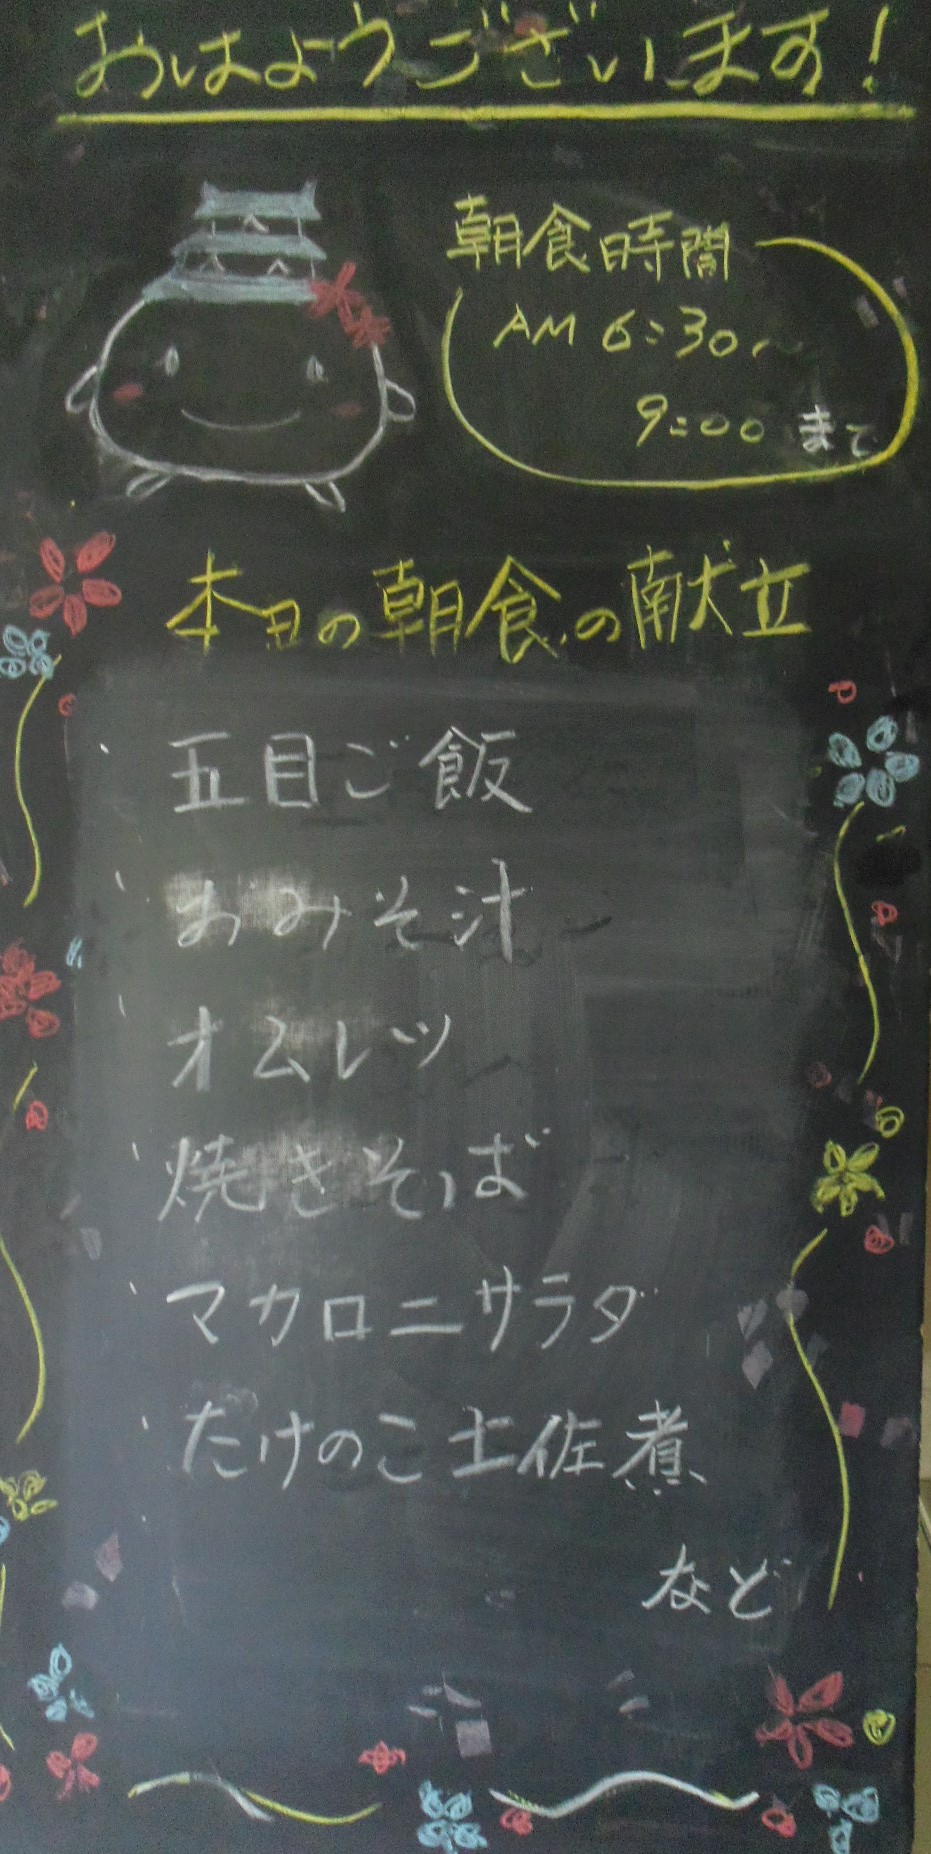 おはようございます!
朝食時間
AM 6:30~
9:00 まで
本日の朝食の献立
五目ご飯
おみそ汁
オムレツ
焼きそば
マカロニサラダ
たけのこ土佐煮
など